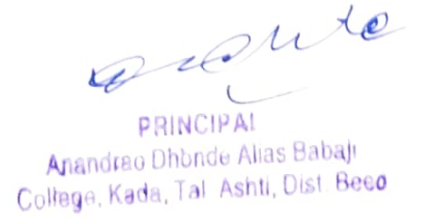 PRINCIPAL
Anandrao Dhbnde Alias Babaji
College, Kada, Tal Ashti, Dist Beed